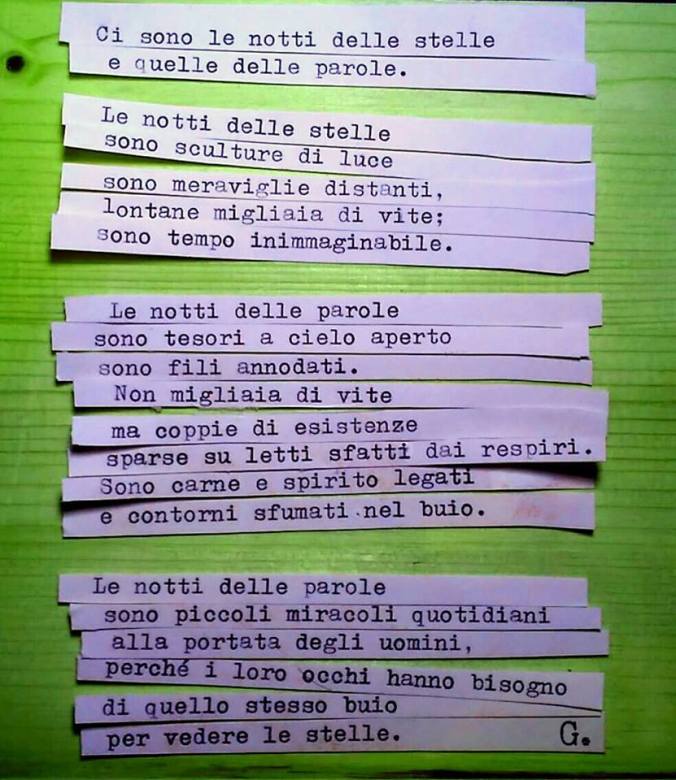 Ci sono le notti delle stelle
e quelle delle parole.
Le notti delle stelle
sono sculture di luce
sono meraviglie distanti,
lontane migliaia di vite;
sono tempo inimmaginabile.
Le notti delle parole
sono tesori a cielo aperto
sono fili annodati.
Non migliaia di vite
ma coppie di esistenze
sparse su letti sfatti dai respiri.
Sono carne e spirito legati
e contorni sfumati nel buio.
Le notti delle parole
sono piccoli miracoli quotidiani
alla portata degli uomini,
perché i loro occhi hanno bisogno
di quello stesso buio
per vedere le stelle.
G.